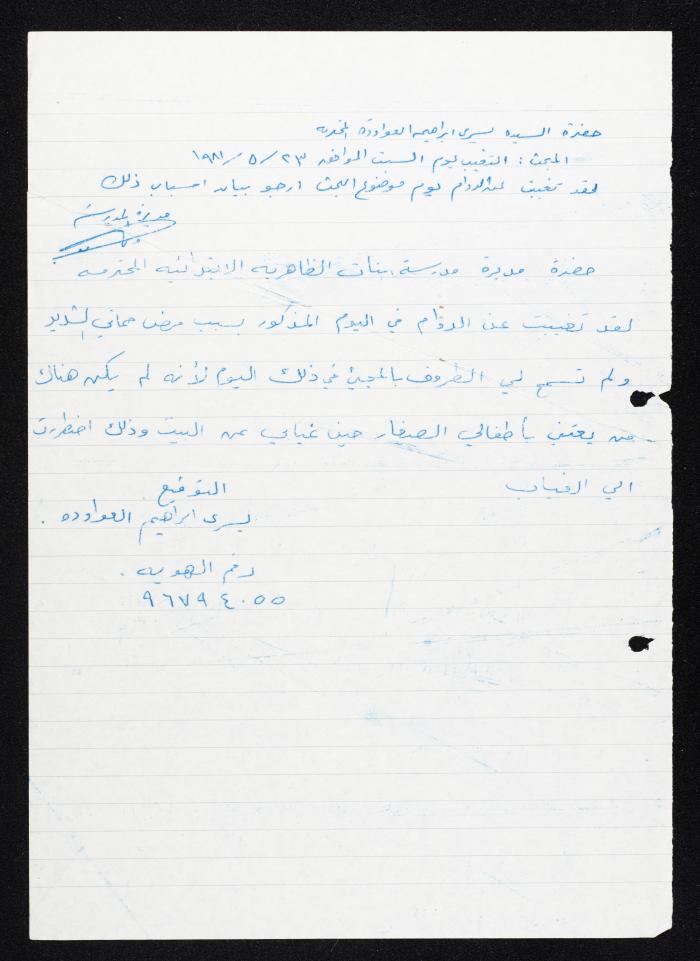 حضرة السيده يسرى ابراهيم العواودة المحترمه
المبحث : التغيب يوم السبت الموافق ٢٣ / ٥ / ١٩٨١
لقد تغيبت عن الدوام يوم موضوع البحث ارجو بيان اسباب ذلك
مديرة المدرسة
حضرة مديرة مدرسة بنات الظاهريه الابتدائيه المحترمه
لقد تغيبت عن الدوام في اليوم المذكور بسبب مرض حماتي الشديد
ولم تسمح لي الظروف بالمجيئ في ذلك اليوم لأنه لم يكن هناك
من يعتني بأطفالي الصغار حين غيابي عن البيت وذلك اضطررت
الى الغياب
التوقيع
يسرى ابراهيم العواوده .
رقم الهويه .
٩٦٧٩٤٠٥٥